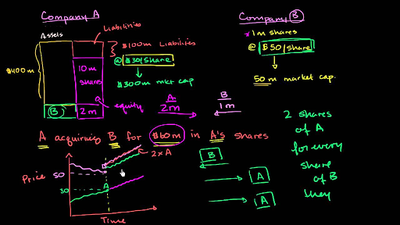 Company A
Liabilities
Assets
$100m Liabilities
@ $30/share
$300m mkt cap
$400m
10m
share
equity
2m
(B)
A
2m
B
1m
Company B
1m shares
@ $50/share
50m market cap.
A acquiring B for $60m in A's shares
2 shares
of A
for every
share
of B
they
B
A
A
2xA
A
Price
50
30
Time